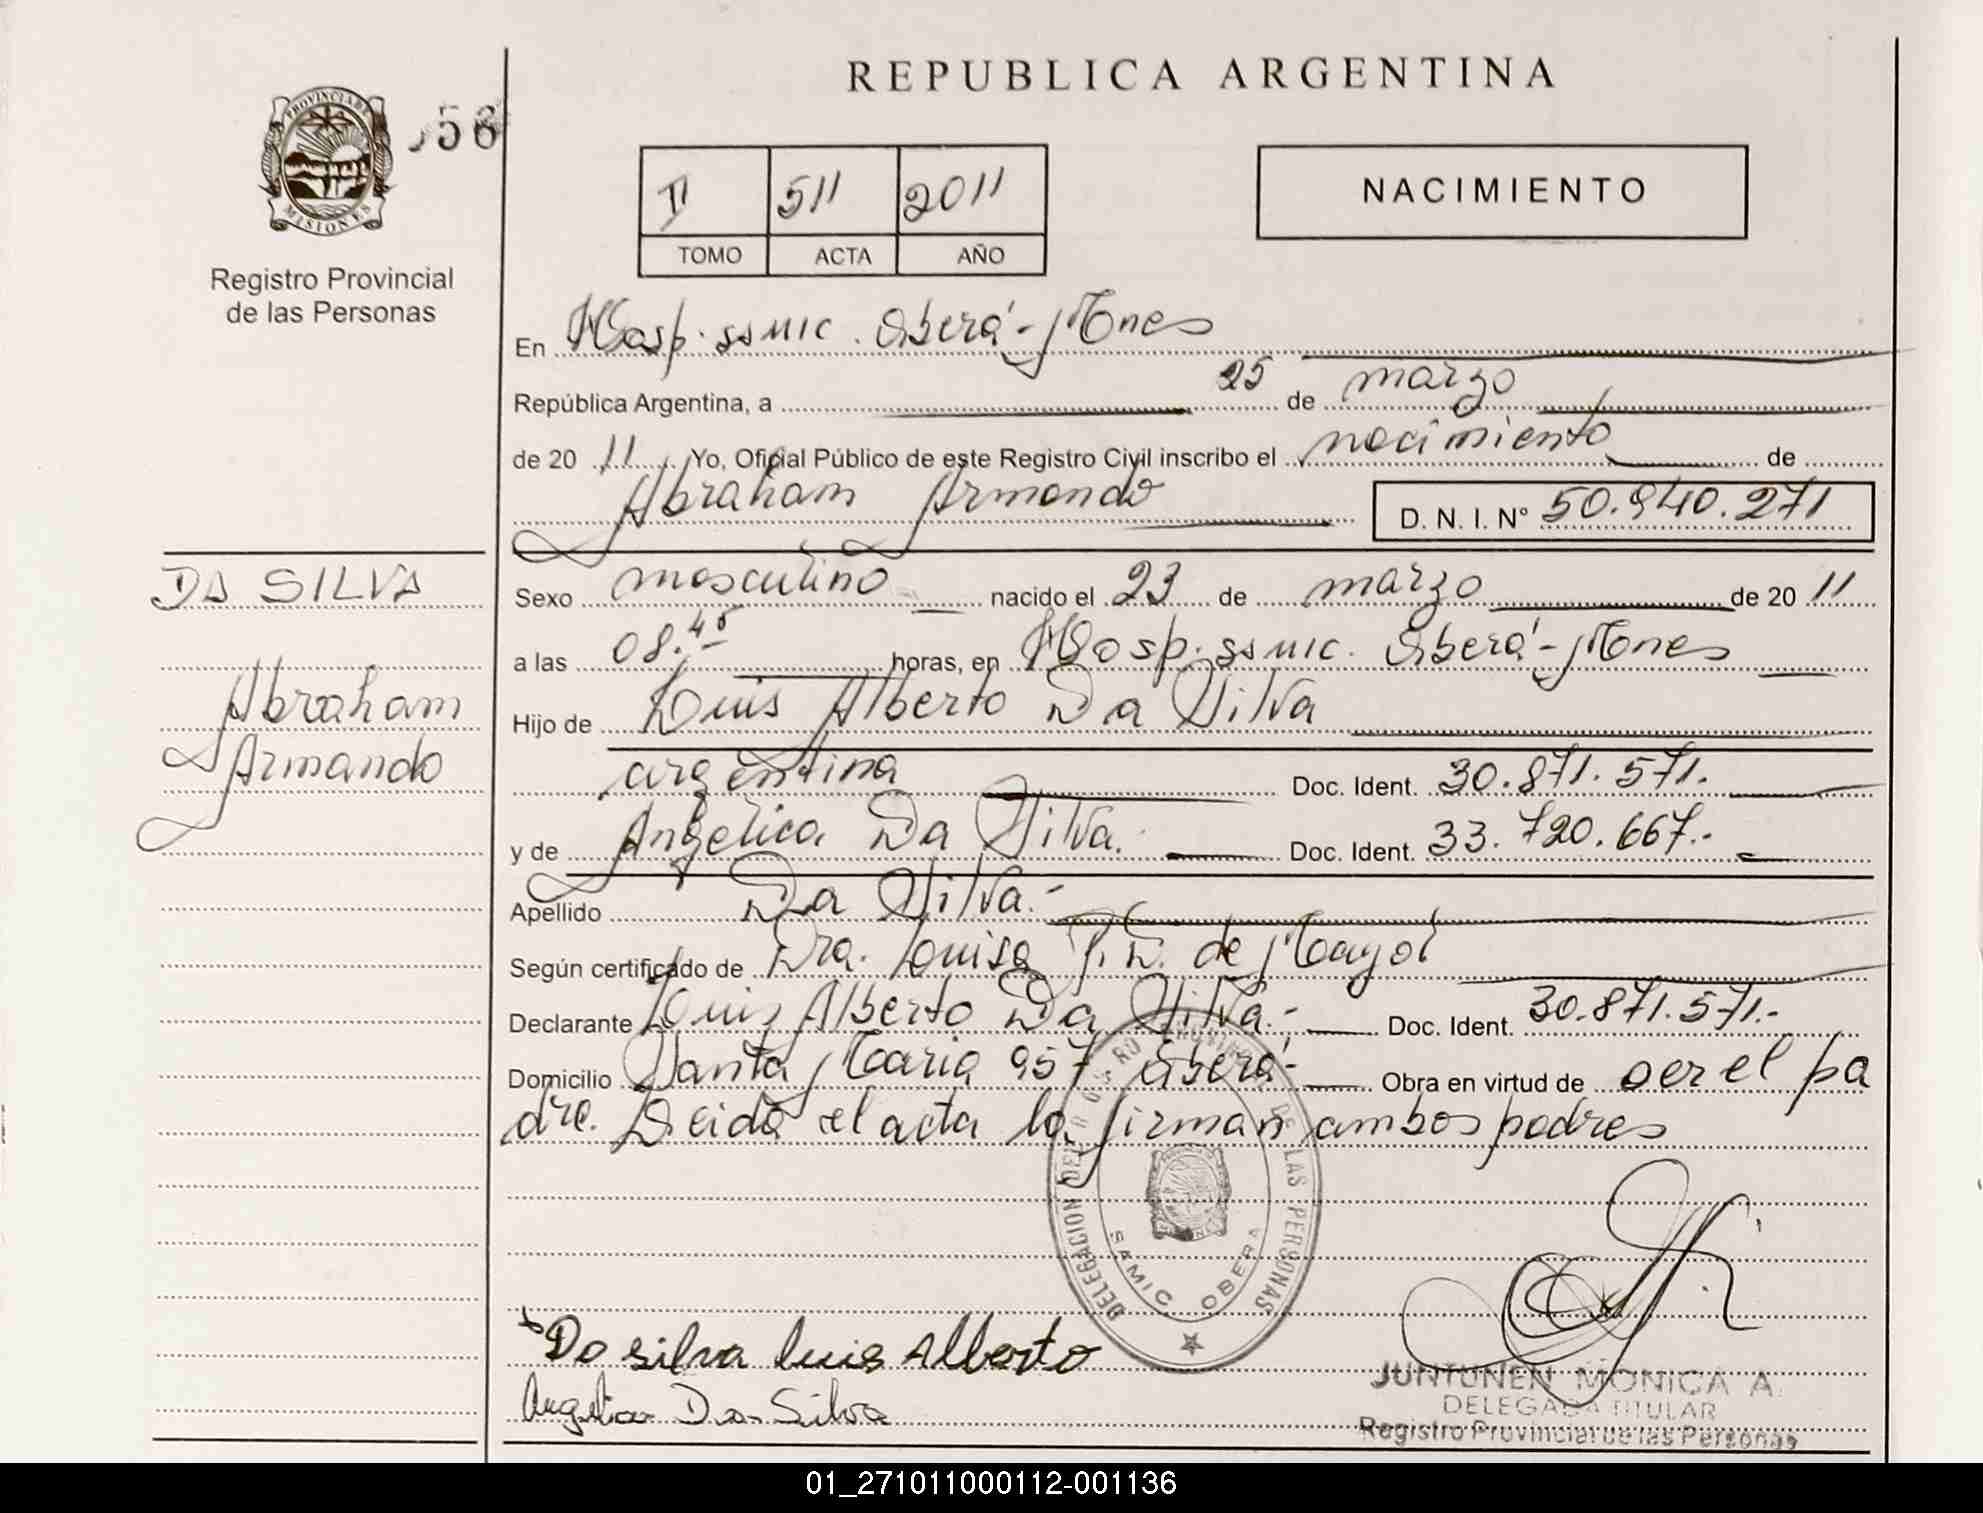 REPUBLICA ARGENTINA
PROVINCIA DE
MISIONES
56
Registro Provincial
de las Personas
II 511 2011
TOMO ACTA AÑO
NACIMIENTO
En Hosp. ssmic. Oberá - Mnes
República Argentina, a 25 de marzo
de 20 11 Yo, Oficial Público de este Registro Civil inscribo el nacimiento de
Abraham Armando D. N. I. Nº 50.940.271
DA SILVA
Abraham
Armando
Sexo masculino nacido el 23 de marzo de 20 11
a las 08.45 horas, en Hosp. ssmic. Oberá - Mnes
Hijo de Luis Alberto Da Silva
argentina Doc. Ident. 30.871.571.
y de Angelica Da Silva. Doc. Ident. 33.720.667.-
Apellido Da Silva.-
Según certificado de Dra. Louisa de Mayol
Declarante Luis Alberto Da Silva.- Doc. Ident. 30.871.571.-
Domicilio Santa Maria 957 Oberá- Obra en virtud de ser el pa
dre. Leida el acta la firman ambos padres
DELEGACION DEL REGISTRO PROVINCIAL DE LAS PERSONAS
SAMIC OBERA
Da silva luis Alberto
Angelica Da Silva
JUNTUNEN MONICA A.
DELEGADA TITULAR
Registro Provincial de las Personas
01_271011000112-001136